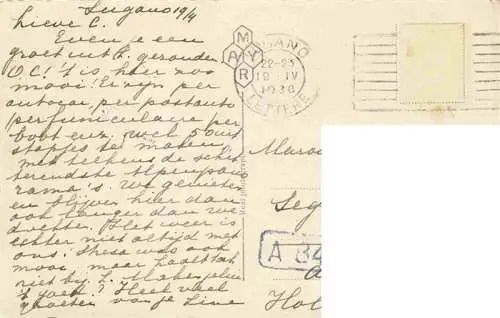 Lugano 19/4
Lieve C.
Even je een
groet uit L. gezonden
O.C! 't is hier zoo
mooi! Er zijn per
autocar, per postauto
per funiculaire per
boot enz. wel 50 uit
stapjes te maken,
met telkens de schit
terendste Alpenpano
rama's. We genieten
en blijven hier dan
ook langer dan we
dachten. Het weer is
echter niet altijd met
ons.
mooi maar haalt 't
niet bij L. Maken jelui
't goed? Heel veel
groeten van je Line
MAYR
LUGANO
22-23
19 IV
1930
LETTERE
Real photograph
Marou
Seg
A 84
Hol